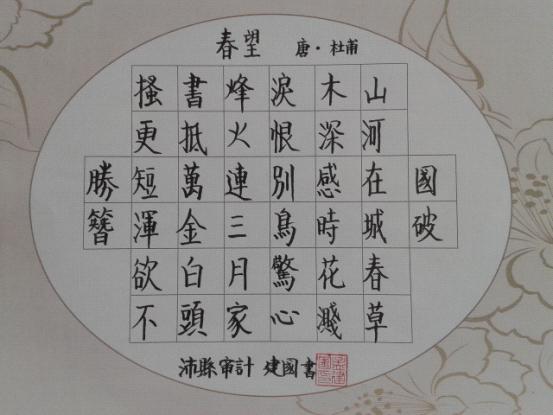 春望 唐·杜甫
國破
山河在城春草
木深感時花濺
淚恨別鳥驚心
烽火連三月家
書抵萬金白頭
搔更短渾欲不
勝簪
沛縣審計 建國書